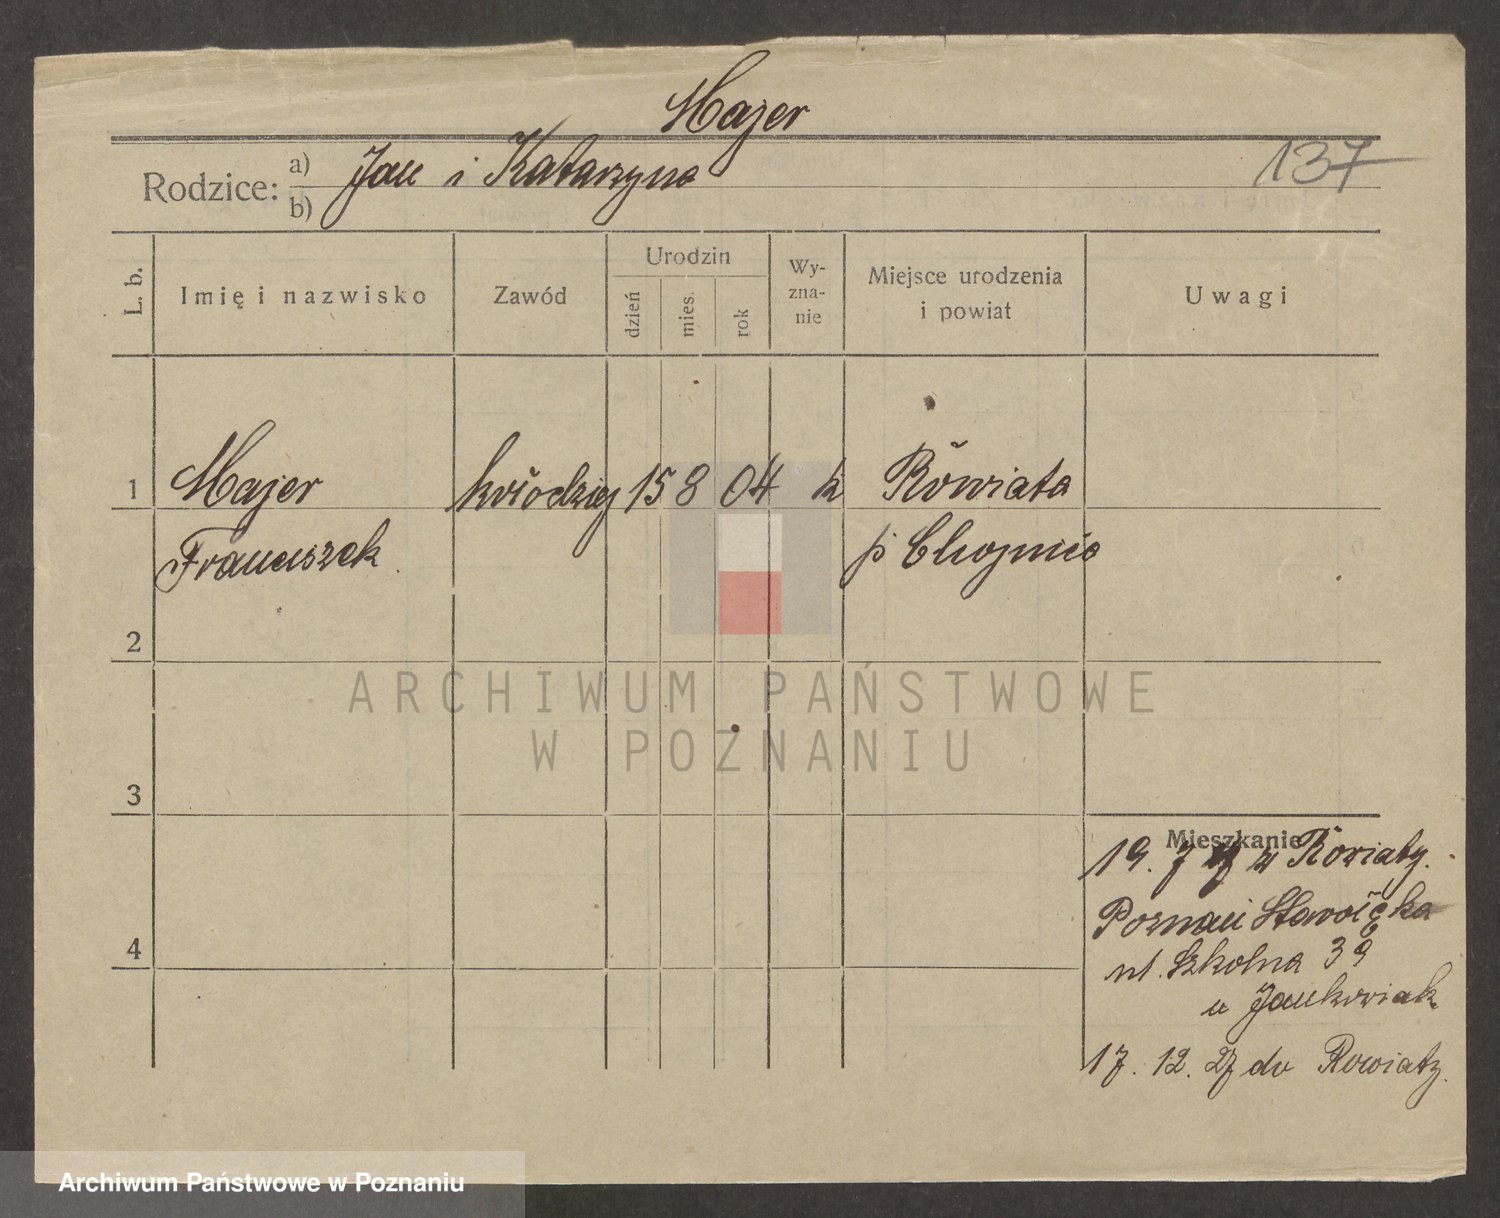 Majer
137
Rodzice: a) Jan i Katarzyna
b)
L. b. Imię i nazwisko Zawód Urodzin dzień mies. rok Wy-zna-nie Miejsce urodzenia i powiat Uwagi
1 Majer kołodziej 15 8 04 k Rówiata
Franciszek p Chojnic
2
ARCHIWUM PAŃSTWOWE
W POZNANIU
3
Mieszkanie
19. 7 z Rowiaty.
Poznań Starołęka
4
ul. Szkolna 39
u Jankowiak
17. 12. 27 do Rowiaty.
Archiwum Państwowe w Poznaniu